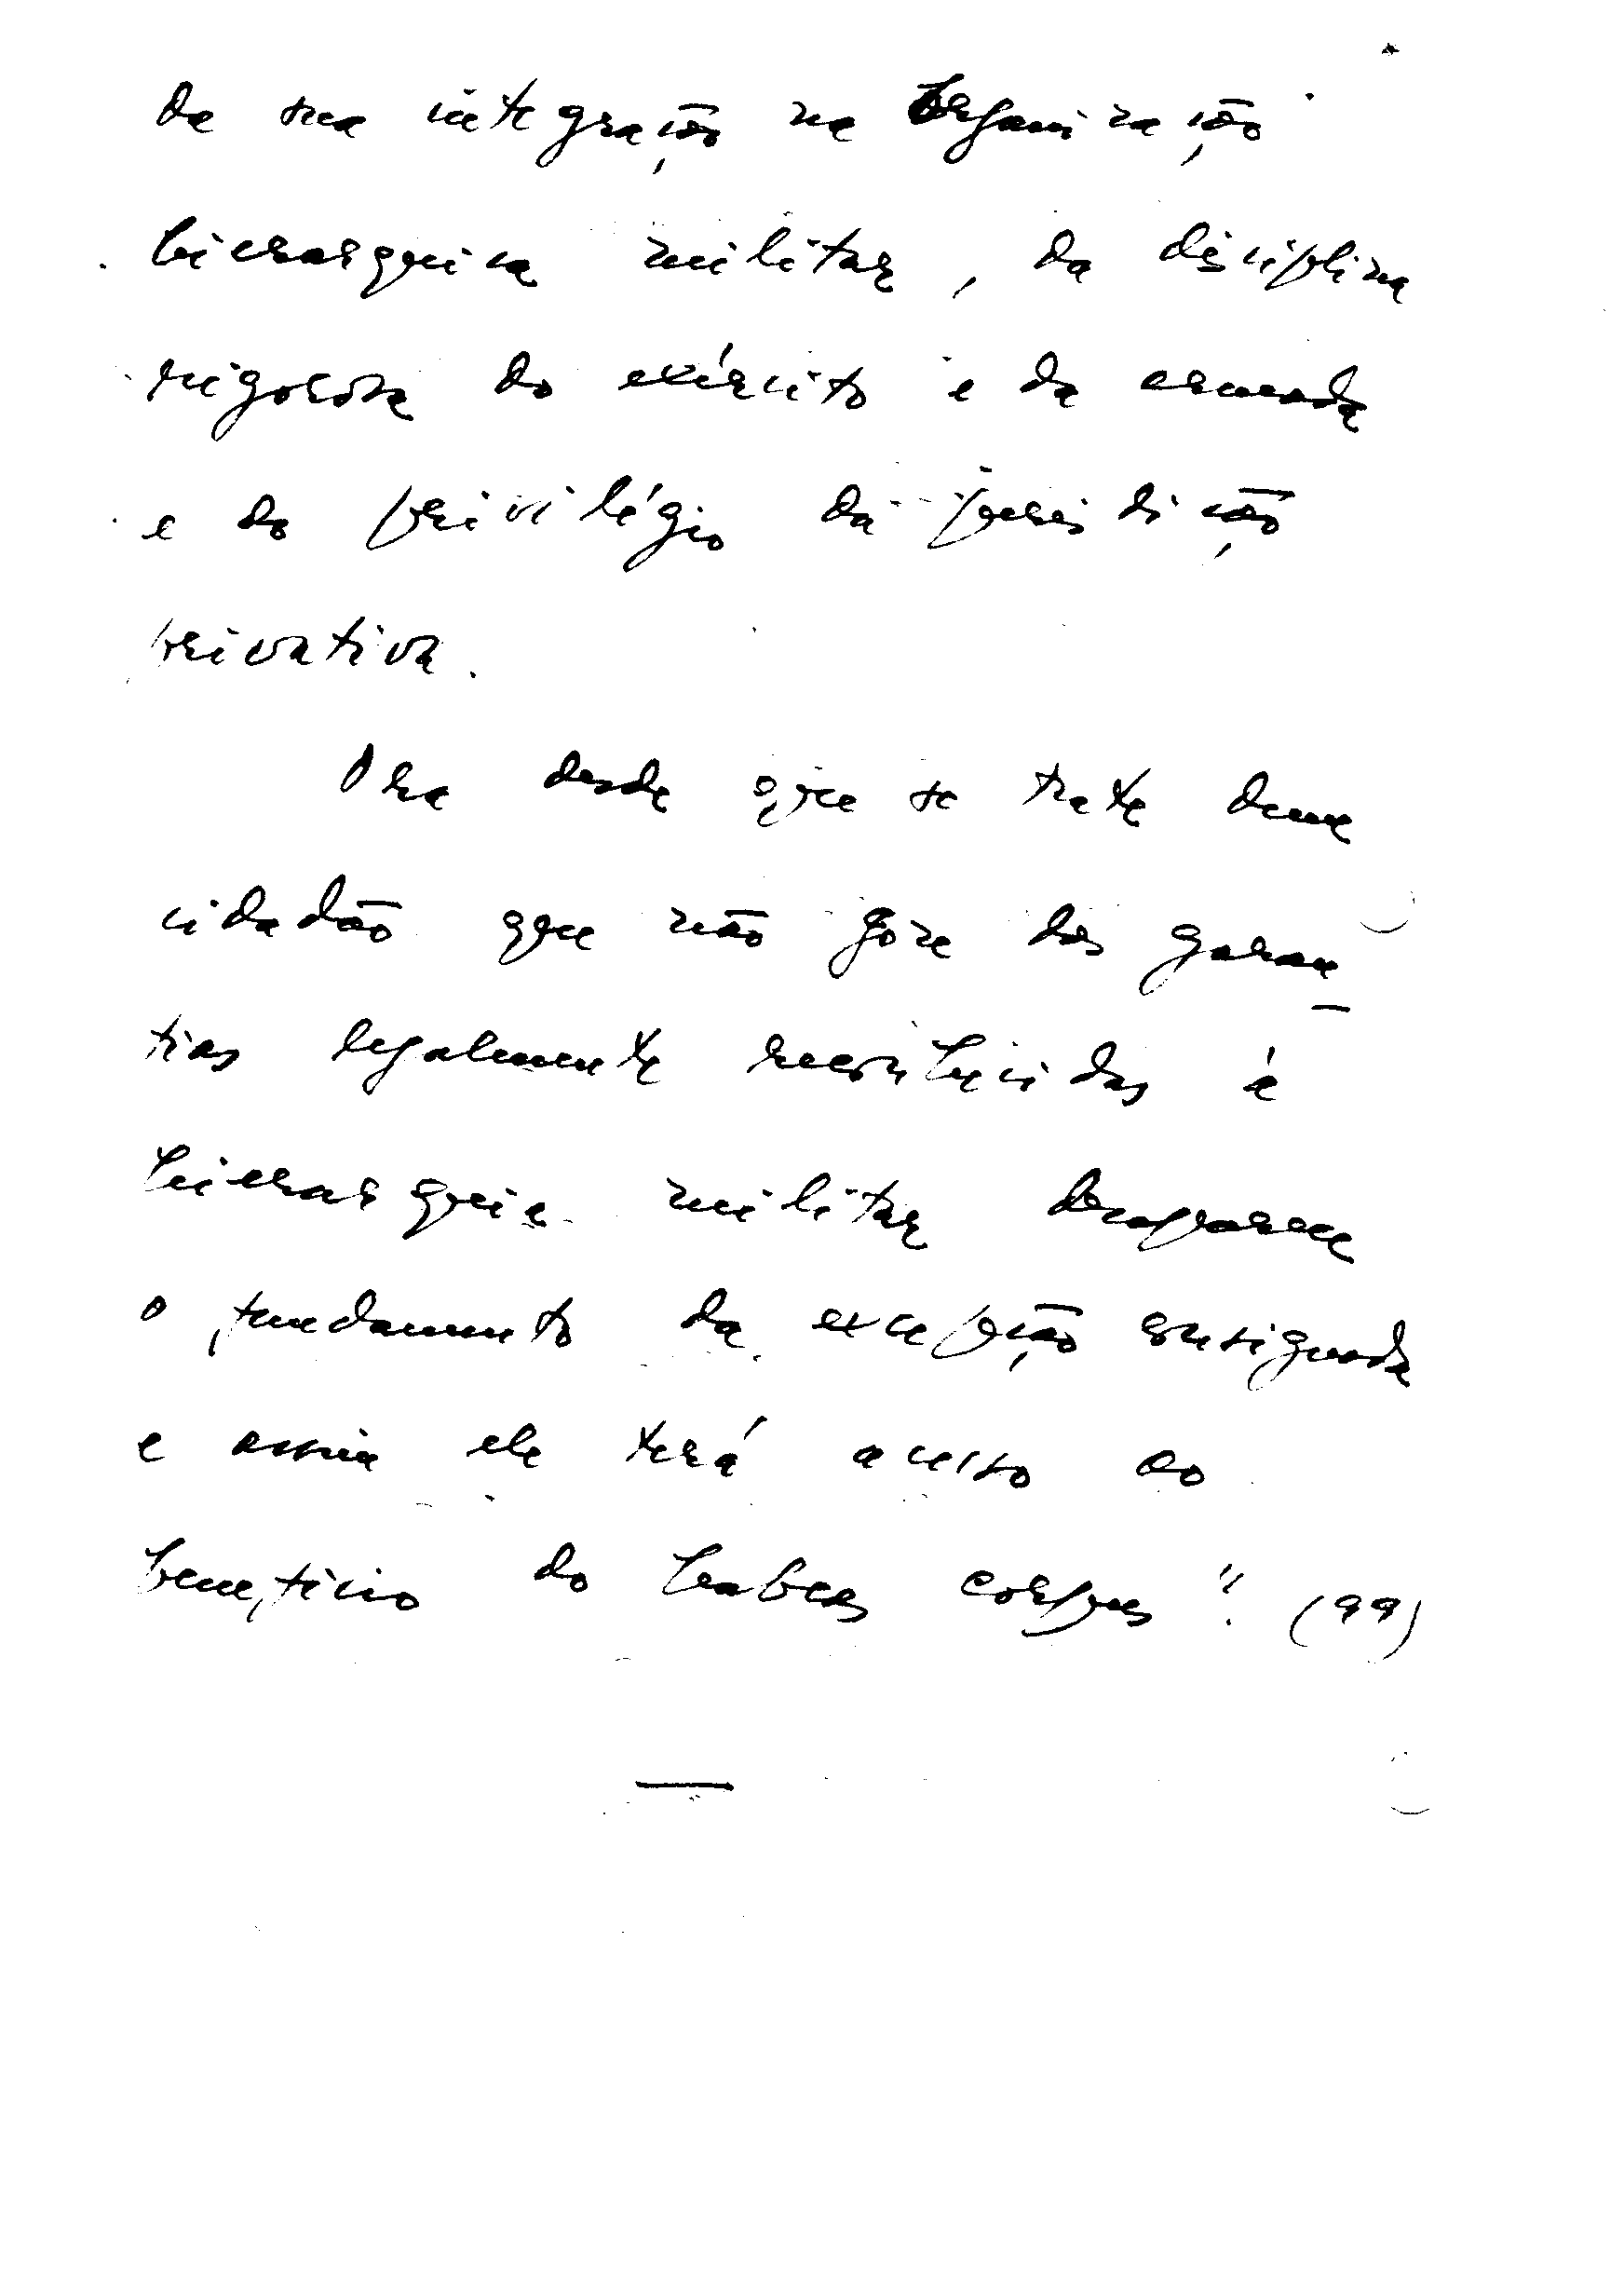 da sua integração na Organização
hierarquica militar, da disciplina
rigorosa do exército e da armada
e do privilégio da jurisdição
privativa.
Ora desde que se trate dum
cidadão que não goze das garan-
tias legalmente reconhecidas á
hierarquia militar desaparece
o fundamento da excepção consignada
e assim ele terá acesso ao
benefício do habeas corpus". (99)